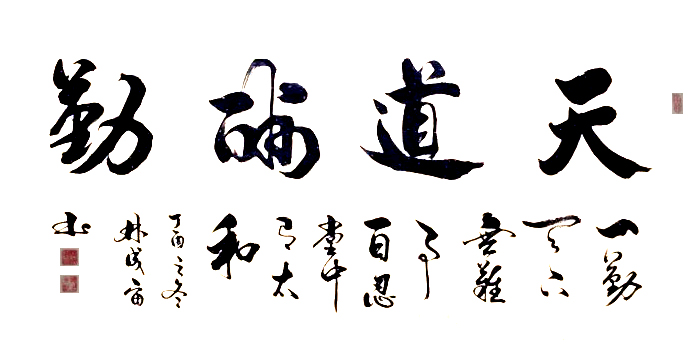 天道酬勤
一勤
天下
無難
事
百忍
堂中
有太
和
丁酉之冬
林成
书